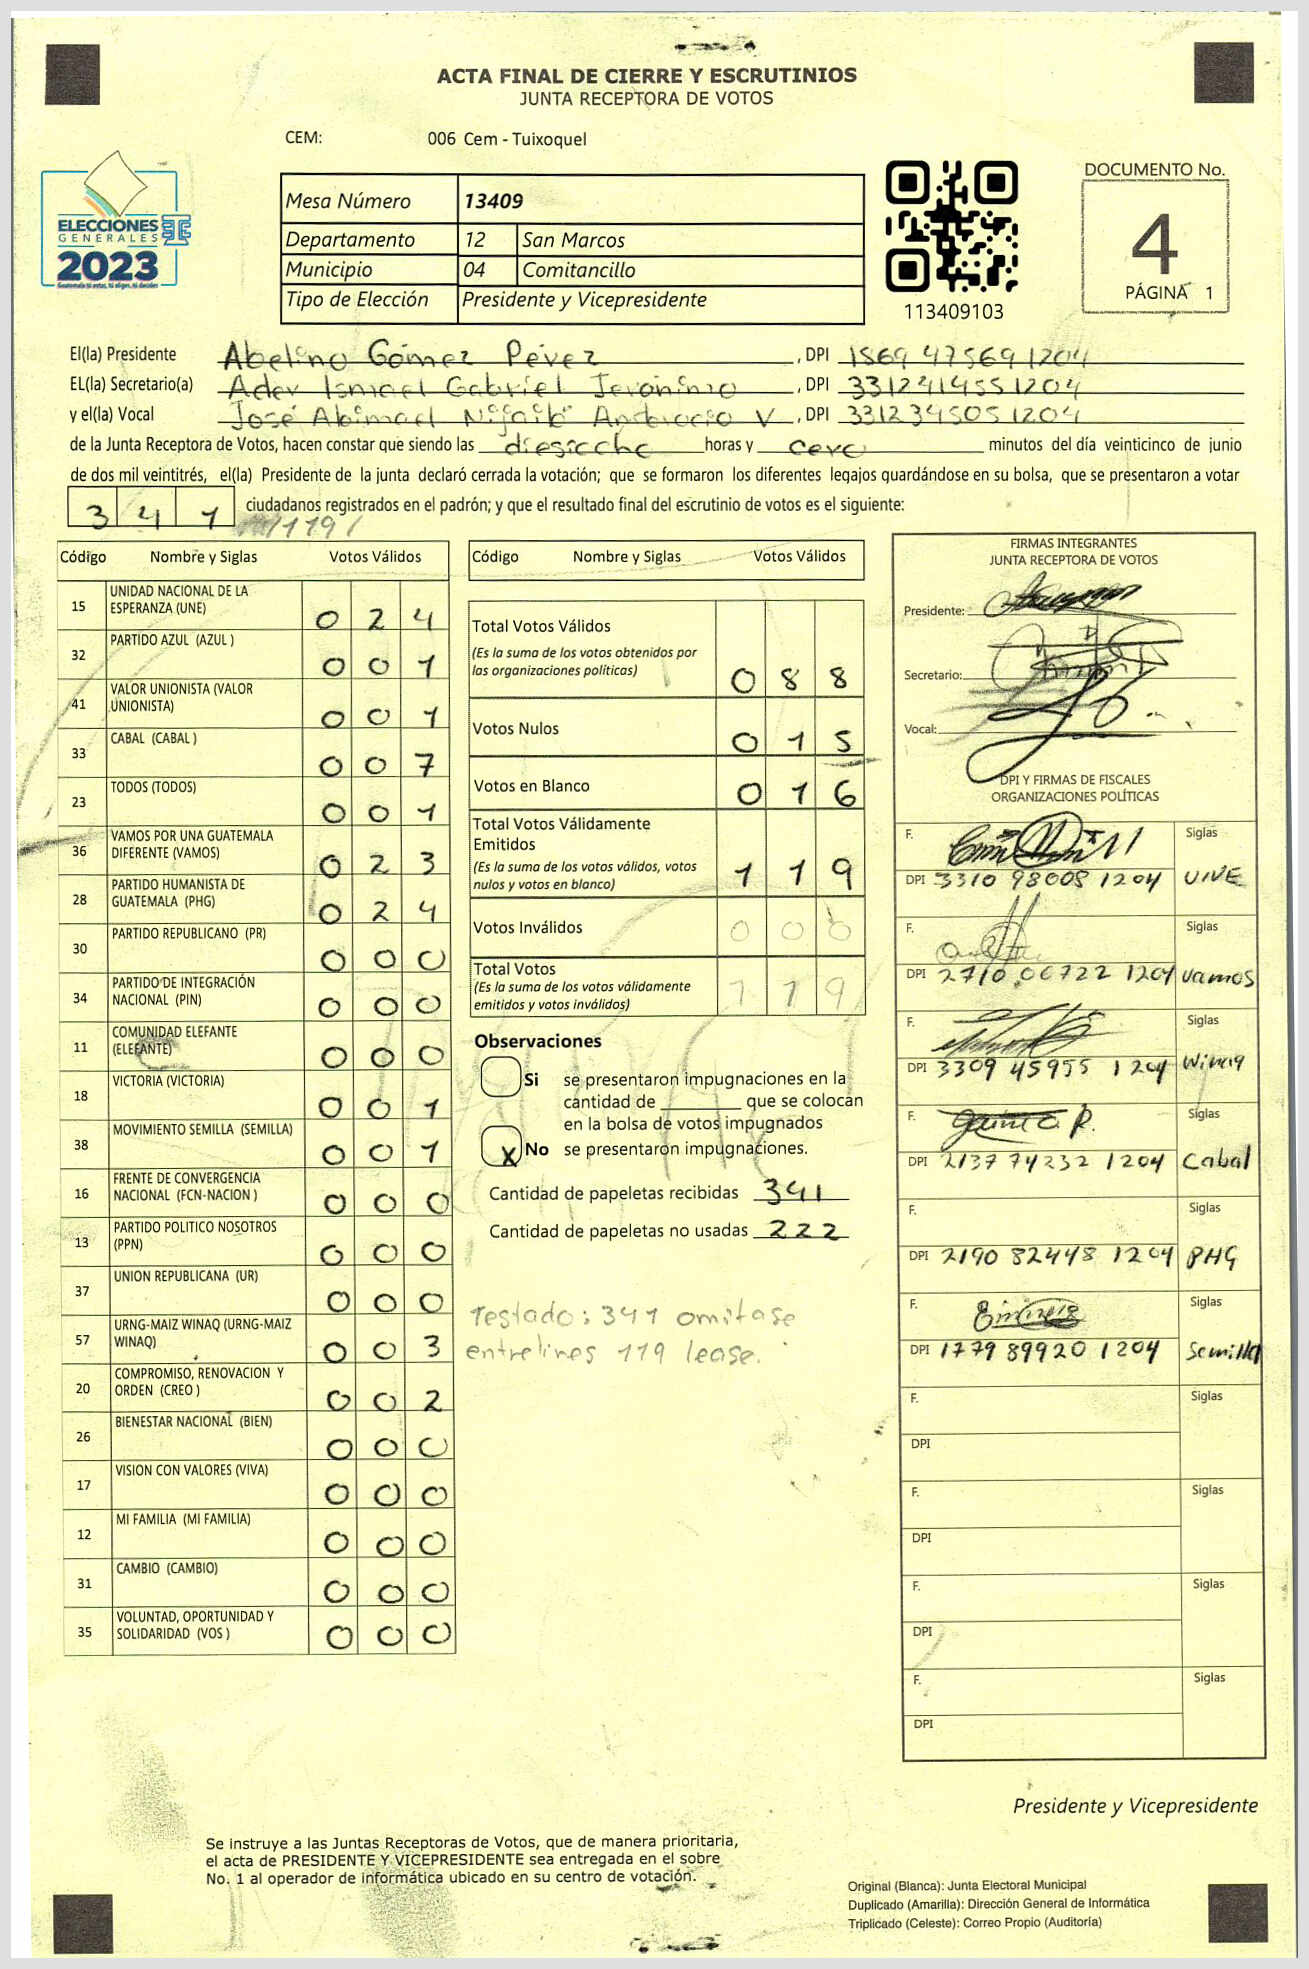 ACTA FINAL DE CIERRE Y ESCRUTINIOS
JUNTA RECEPTORA DE VOTOS
CEM: 006 Cem - Tuixoquel
ELECCIONES
GENERALES
2023
Mesa Número 13409
Departamento 12 San Marcos
Municipio 04 Comitancillo
Tipo de Elección Presidente y Vicepresidente
113409103
DOCUMENTO No.
4
PÁGINA 1
El(la) Presidente Abelino Gómez Pérez, DPI 1569 47569 1204
EL(la) Secretario(a) Ader Ismael Gabriel Jerónimo, DPI 331241455 1204
y el(la) Vocal José Abimael Ambrocio V, DPI 331234505 1204
de la Junta Receptora de Votos, hacen constar que siendo las diesicche horas y cero minutos del día veinticinco de junio
de dos mil veintitrés, el(la) Presidente de la junta declaró cerrada la votación; que se formaron los diferentes legajos guardándose en su bolsa, que se presentaron a votar
341 ciudadanos registrados en el padrón; y que el resultado final del escrutinio de votos es el siguiente:
/119/
Código Nombre y Siglas Votos Válidos
15 UNIDAD NACIONAL DE LA ESPERANZA (UNE) 0 2 4
32 PARTIDO AZUL (AZUL ) 0 0 1
41 VALOR UNIONISTA (VALOR UNIONISTA) 0 0 1
33 CABAL (CABAL ) 0 0 7
23 TODOS (TODOS) 0 0 1
36 VAMOS POR UNA GUATEMALA DIFERENTE (VAMOS) 0 2 3
28 PARTIDO HUMANISTA DE GUATEMALA (PHG) 0 2 4
30 PARTIDO REPUBLICANO (PR) 0 0 0
34 PARTIDO DE INTEGRACIÓN NACIONAL (PIN) 0 0 0
11 COMUNIDAD ELEFANTE (ELEFANTE) 0 0 0
18 VICTORIA (VICTORIA) 0 0 1
38 MOVIMIENTO SEMILLA (SEMILLA) 0 0 1
16 FRENTE DE CONVERGENCIA NACIONAL (FCN-NACION ) 0 0 0
13 PARTIDO POLITICO NOSOTROS (PPN) 0 0 0
37 UNION REPUBLICANA (UR) 0 0 0
57 URNG-MAIZ WINAQ (URNG-MAIZ WINAQ) 0 0 3
20 COMPROMISO, RENOVACION Y ORDEN (CREO ) 0 0 2
26 BIENESTAR NACIONAL (BIEN) 0 0 0
17 VISION CON VALORES (VIVA) 0 0 0
12 MI FAMILIA (MI FAMILIA) 0 0 0
31 CAMBIO (CAMBIO) 0 0 0
35 VOLUNTAD, OPORTUNIDAD Y SOLIDARIDAD (VOS ) 0 0 0
Código Nombre y Siglas Votos Válidos
Total Votos Válidos 0 8 8
(Es la suma de los votos obtenidos por
las organizaciones políticas)
Votos Nulos 0 1 5
Votos en Blanco 0 1 6
Total Votos Válidamente
Emitidos 1 1 9
(Es la suma de los votos válidos, votos
nulos y votos en blanco)
Votos Inválidos 0 0 0
Total Votos 1 1 9
(Es la suma de los votos válidamente
emitidos y votos inválidos)
Observaciones
Si se presentaron impugnaciones en la
cantidad de ________ que se colocan
en la bolsa de votos impugnados
X No se presentaron impugnaciones.
Cantidad de papeletas recibidas 341
Cantidad de papeletas no usadas 222
Testado: 341 omitase
entrelines 119 lease.
FIRMAS INTEGRANTES
JUNTA RECEPTORA DE VOTOS
Presidente:
Secretario:
Vocal:
DPI Y FIRMAS DE FISCALES
ORGANIZACIONES POLÍTICAS
F. Siglas
DPI 3310 98008 1204 VIVE
F. Siglas
DPI 2710 06722 1204 vamos
F. Siglas
DPI 3309 45955 1204 Winaq
F. Siglas
DPI 2137 74232 1204 Cabal
F. Siglas
DPI 2190 82448 1204 PHG
F. Siglas
DPI 1779 89920 1204 Semilla
F. Siglas
DPI
F. Siglas
DPI
F. Siglas
DPI
F. Siglas
DPI
Presidente y Vicepresidente
Se instruye a las Juntas Receptoras de Votos, que de manera prioritaria,
el acta de PRESIDENTE Y VICEPRESIDENTE sea entregada en el sobre
No. 1 al operador de informática ubicado en su centro de votación.
Original (Blanca): Junta Electoral Municipal
Duplicado (Amarilla): Dirección General de Informática
Triplicado (Celeste): Correo Propio (Auditoría)